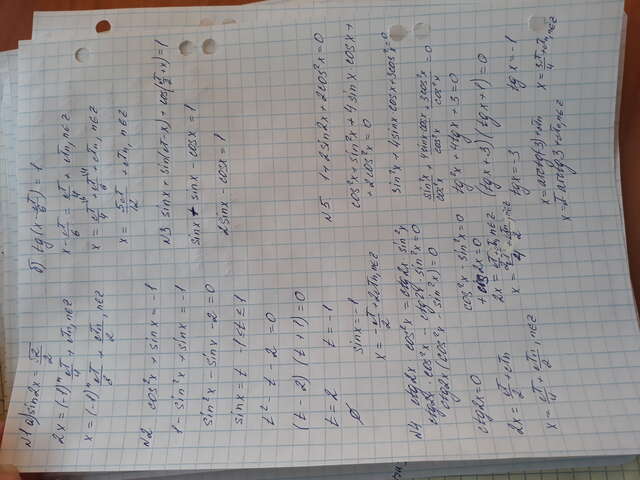 №1 а) sin2x = √2/2
2x = (-1)ⁿ π/4 + πn, n∈z
x = (-1)ⁿ π/8 + πn/2, n∈z
б) tg(x - π/6) = 1
x - π/6 = π/4 + πn, n∈z
x = π/4 + π/6 + πn, n∈z
x = 5π/12 + πn, n∈z
№2 cos²x + sinx = -1
1 - sin²x + sinx = -1
sin²x - sinx - 2 = 0
sinx = t -1≤t≤1
t² - t - 2 = 0
(t - 2) (t + 1) = 0
t = 2 t = -1
∅ sinx = -1
x = -π/2 + 2πn, n∈z
№3 sinx + sin(π-x) + cos(π/2 + x) = 1
sinx + sinx - cosx = 1
2sinx - cosx = 1
№4 ctg2x · cos²x = ctg2x · sin²x
ctg2x · cos²x - ctg2x · sin²x = 0
ctg2x (cos²x - sin²x) = 0
ctg2x = 0
2x = π/2 + πn
x = π/4 + πn/2, n∈z
cos²x - sin²x = 0
cos2x = 0
2x = π/2 + πn, n∈z
x = π/4 + πn/2, n∈z
№5. 1 + 2sin2x + 2cos²x = 0
cos²x + sin²x + 4sinx·cosx +
+ 2cos²x = 0
sin²x + 4sinx·cosx + 3cos²x = 0
sin²x/cos²x + 4sinxcosx/cos²x + 3cos²x/cos²x = 0
tg²x + 4tgx + 3 = 0
(tgx + 3) (tgx + 1) = 0
tgx = -3 tgx = -1
x = arctg(-3) + πn x = 3π/4 + πn, n∈z